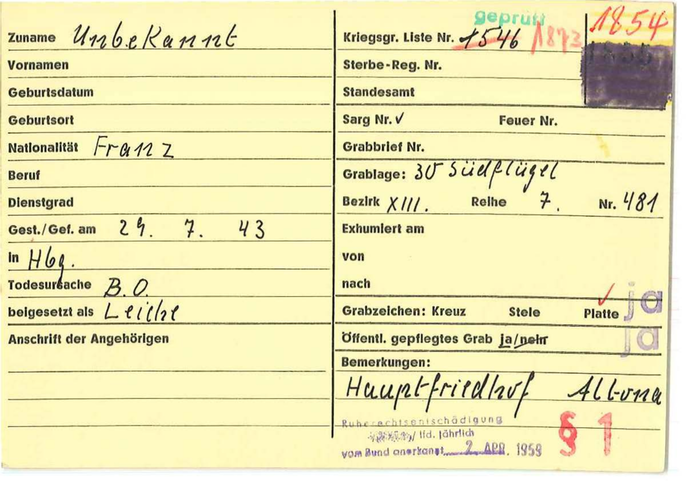 geprüft
Zuname Unbekannt
Vornamen
Geburtsdatum
Geburtsort
Nationalität Franz
Beruf
Dienstgrad
Gest./Gef. am 29. 7. 43
in Hbg.
Todesursache B.O.
beigesetzt als Leiche
Anschrift der Angehörigen
Kriegsgr. Liste Nr. 1546 1873 1854
Sterbe-Reg. Nr.
Standesamt
Sarg Nr. Feuer Nr.
Grabbrief Nr.
Grablage: 30 Südflügel
Bezirk XIII. Reihe 7. Nr. 481
Exhumiert am
von
nach
Grabzeichen: Kreuz Stele Platte ja
Öffentl. gepflegtes Grab ja/nein ja
Bemerkungen:
Hauptfriedhof Altona
Ruherechtsentschädigung
/ lfd. jährlich
vom Bund anerkannt 2. APR. 1959
§ 1